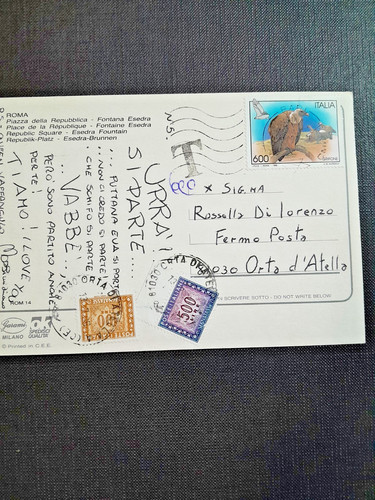 ROMA
Piazza della Repubblica - Fontana Esedra
Place de la République - Fontaine Esedra
Republic Square - Esedra Fountain
Republik-Platz - Esedra-Brunnen
URRA'!
SI PARTE...
... PUTTANA EVA SI PARTE
... NON CI CREDO SI PARTE
... CHE SCHIFO SI PARTE
... VABBÈ!...
PERÒ SONO PARTITO ANCHE
PERTE!
TI AMO! I LOVE
T
ITALIA
600
x SIG.NA
Rossella Di Lorenzo
Fermo Posta
81030 Orta d'Atella
SCRIVERE SOTTO - DO NOT WRITE BELOW
81030 ORTA DI
500
ROM 14
MILANO
© Printed in C.E.E.